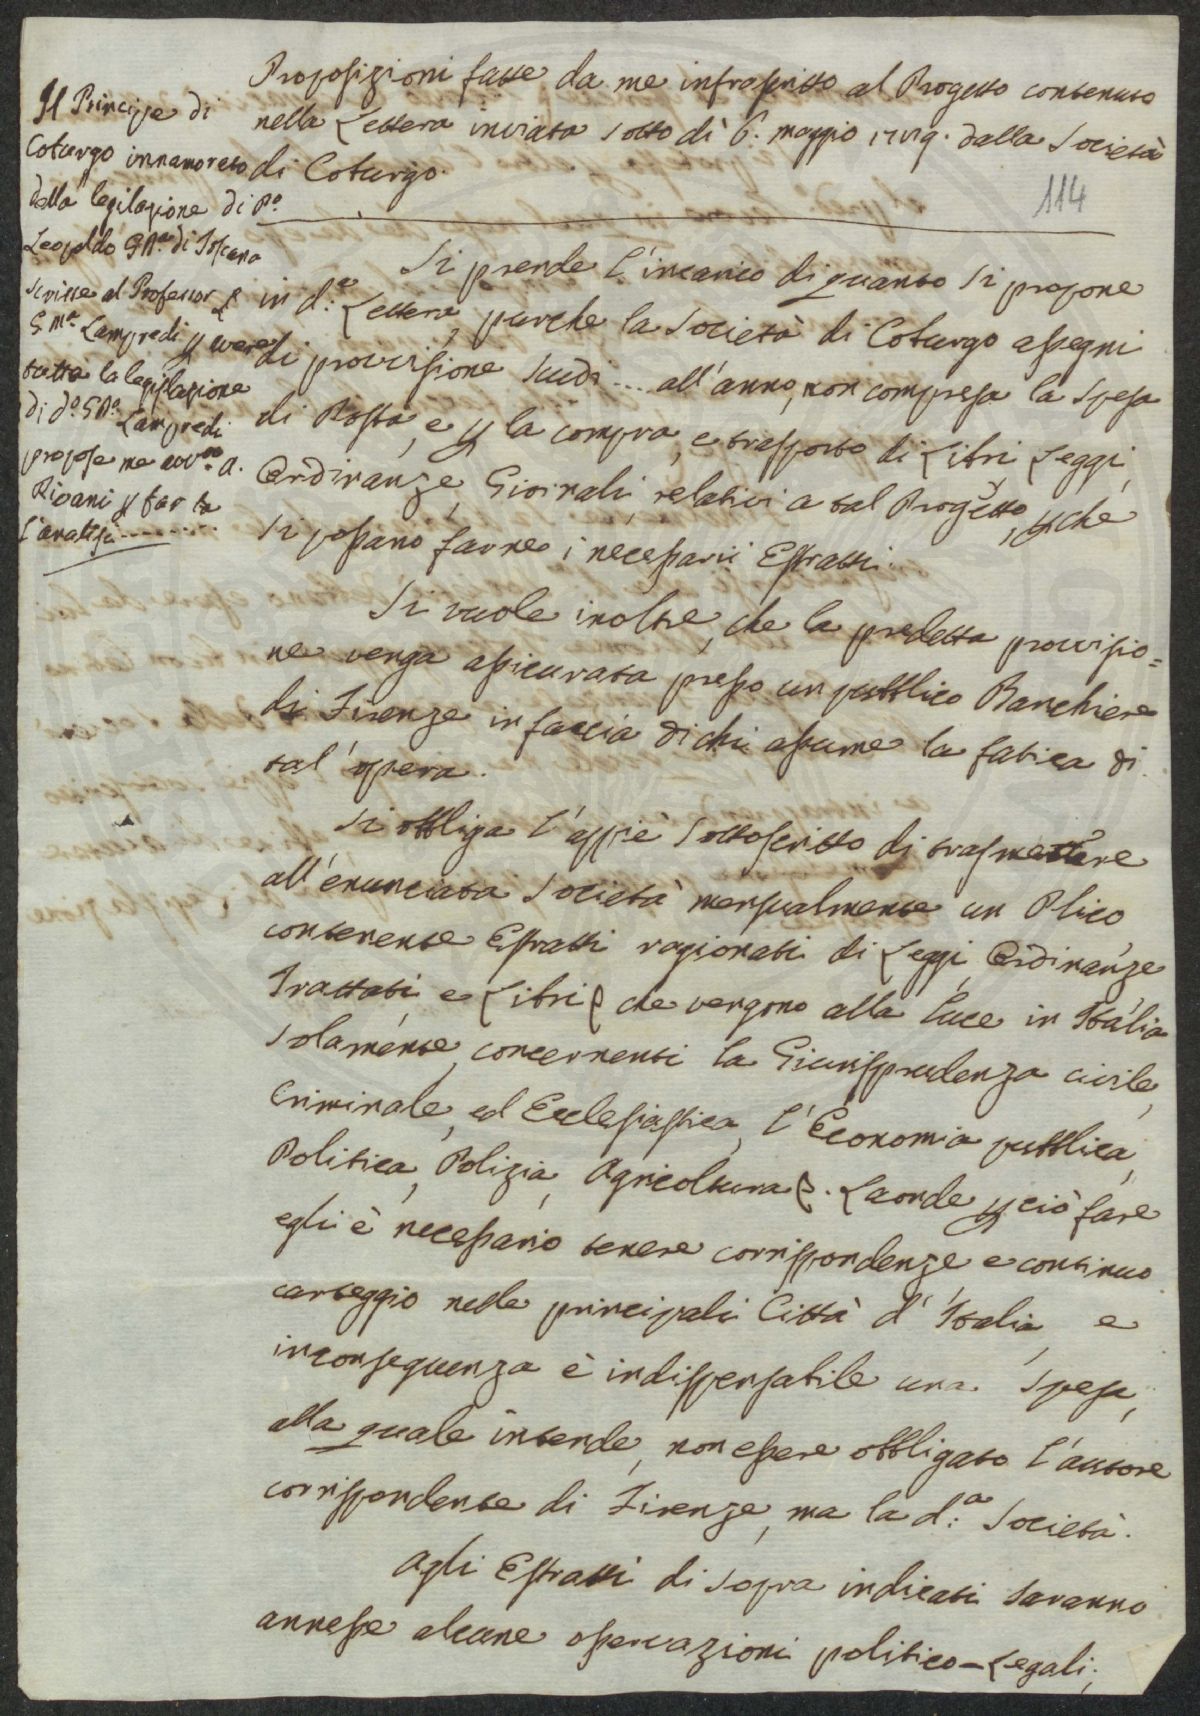 Proposizioni fatte da me infrascritto al Progetto contenuto
nella Lettera inviata sotto dì 6. maggio dalla Società
di Coburgo.
114
Il Principe di
Coburgo innamorato
della legislazione di P.º
Leopoldo G.D. di Toscana
scrisse al Professor
G. M.ª Lampredi p avere
tutta la legislazione
di d.º G.D.º Lampredi
propose me avv.to A.
Rivani p far ta
l'analisi..........
Si prende l'incarico di quanto si propone
in d.ª Lettera, purche la Società di Coburgo assegni
di provvisione scudi ... all'anno, non compresa la spesa
di Posta, e p la compra, e trasporto di Libri, Leggi,
Ordinanze, Giornali, relativi a tal Progetto, p che
si possano farne i necessarii Estratti.
Si vuole inoltre, che la predetta provvisio=
ne venga assicurata presso un pubblico Banchiere
di Firenze in faccia di chi assume la fatica di
tal' opera.
Si obbliga l'appiè sottoscritto di trasmettere
all'enunciata Società mensualmente un Plico
contenente Estratti ragionati di Leggi, Ordinanze
Trattati e Libri che vengono alla luce in Italia
solamente, concernenti la Giurisprudenza civile,
Criminale, ed Ecclesiastica, l'Economia pubblica,
Politica, Polizia, Agricoltura. Laonde p ciò fare
egli è necessario tenere corrispondenze e continuo
carteggio nelle principali Città d'Italia, e
inconseguenza è indispensabile una spesa,
alla quale intende, non essere obbligato l'autore
corrispondente di Firenze, ma la d.ª Società.
Agli Estratti di sopra indicati saranno
annesse alcune osservazioni politico-Legali;